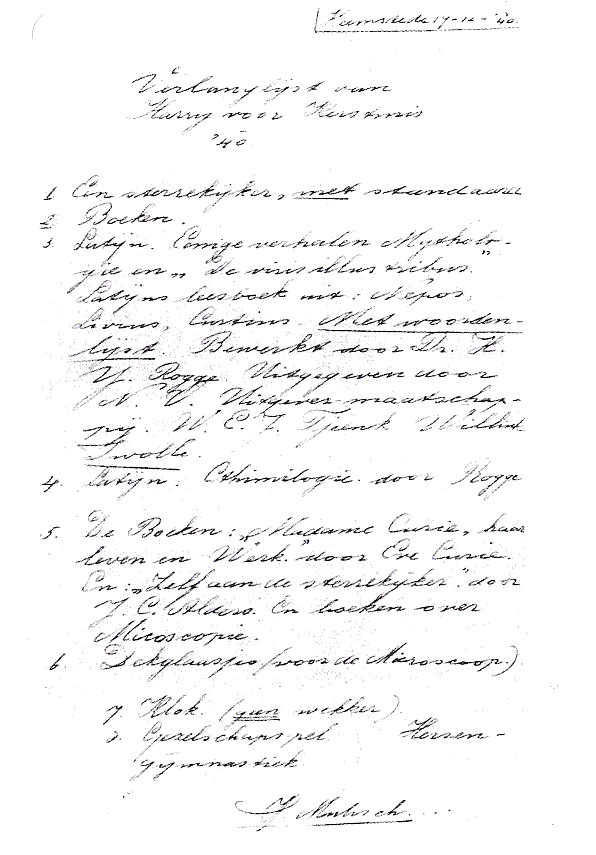 Heemstede 17-12-'40.
Verlanglijst van
Harry voor Kerstmis
'40
1 Een sterrekijker, met standaard
2 Boeken.
3. Latijn. Eenige verhalen Mytholo-
gie en „De viris illustribus."
Latijns leesboek uit: Nepos,
Livius, Curtius. Met woorden-
lijst. Bewerkt door Dr. H.
Y. Rogge Uitgegeven door
N. V. Uitgever-maatschap-
pij. W. E. J. Tjeenk Willink
Zwolle.
4. Latijn. Ethimilogie. door Rogge
5. De Boeken: „Madame Curie, haar
leven en Werk." door Eve Curie.
En: „Zelf aan de sterrekijker". door
J. C. Alders. En boeken over
Micoscopie.
6. Dekglaasjes (voor de Microscoop.)
7. Klok. (geen wekker)
Gezelschapspel Hersen-
gymnastiek
H Mulisch...